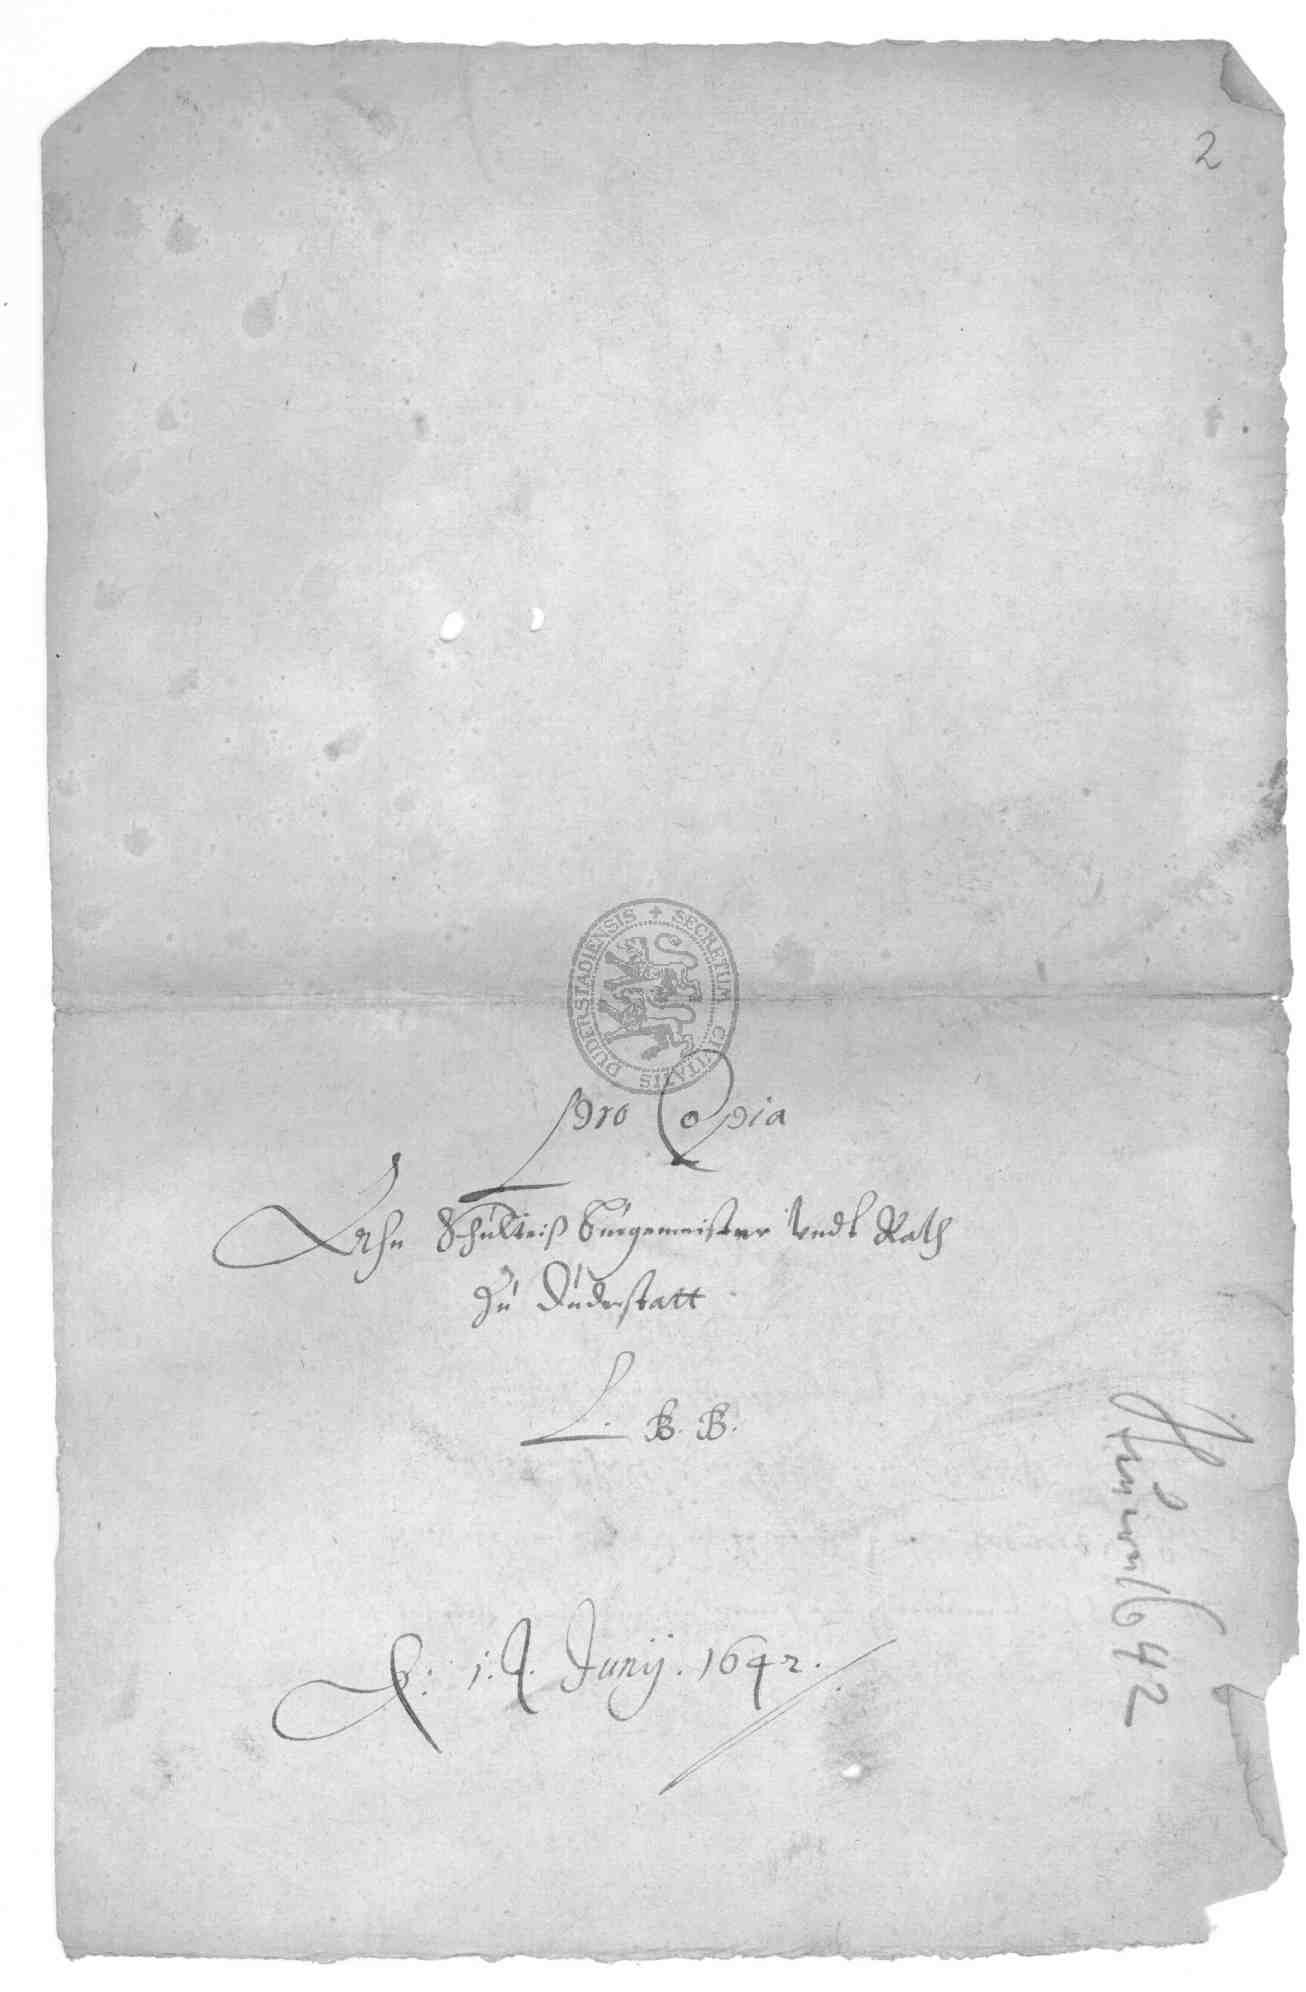 2
SECRETUM CIVITATIS DUDERSTADIENSIS
Pro Copia
Ahn Schulteiß Burgemeister Vndt Rath
Zu Duderstatt
L. B. B.
1. Junij. 1642.
1642